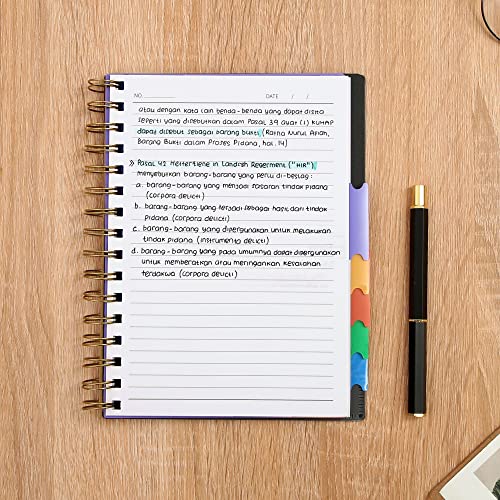 NO.
DATE / /
atau dengan kata lain benda-benda yang dapat disita
seperti yang disebutkan dalam Pasal 39 ayat (1) KUHAP
dapat disebut sebagai barang bukti (Ratna Nurul Afiah,
Barang Bukti dalam Proses Pidana, hal.14)
» Pasal 42 Hetterziene in Landrah Regerment ("HIR")
menyebutkan barang-barang yang perlu di-beslag:
a. barang-barang yang menjadi sasaran tindak pidana
(corpora delicti)
b. barang-barang yang terjadi sebagai hasil dari tindak
pidana (corpora delicti)
c. barang-barang yang dipergunakan untuk melakukan
tindak pidana (instrumenta delicti)
d. barang-barang yang pada umumnya dapat dipergunakan
untuk memberatkan atau meringankan kesalahan
terdakwa (corpora delicti)